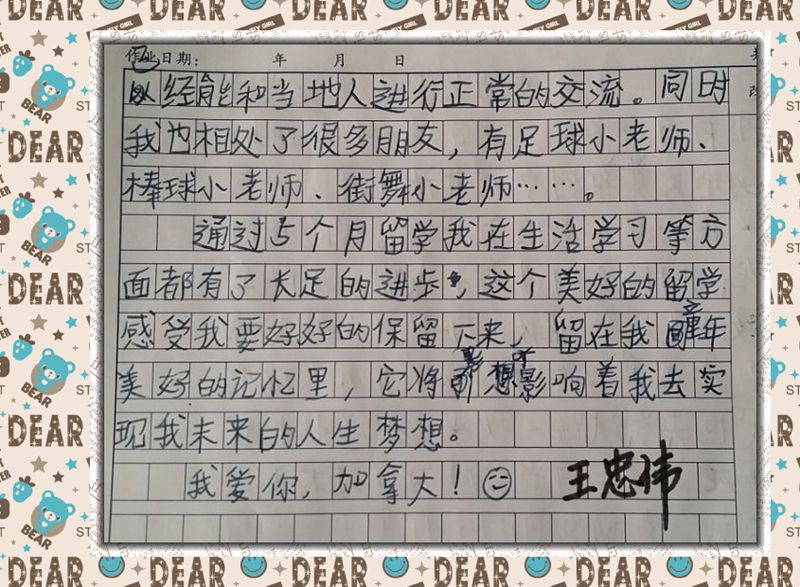 DEAR DEAR DEAR DEAR DEAR
作业日期： 年 月 日
以经能和当地人进行正常的交流。同时
我也相处了很多朋友，有足球小老师、
棒球小老师、街舞小老师……。
通过5个月留学我在生活学习等方
面都有了长足的进步，这个美好的留学
感受我要好好的保留下来，留在我童年
美好的记忆里，它将影响着我去实
现我未来的人生梦想。
我爱你，加拿大！☺ 王忠伟
BEAR
DEAR
BEAR
DEAR
BEAR
DEAR
BEAR
DEAR DEAR DEAR DEAR DEAR